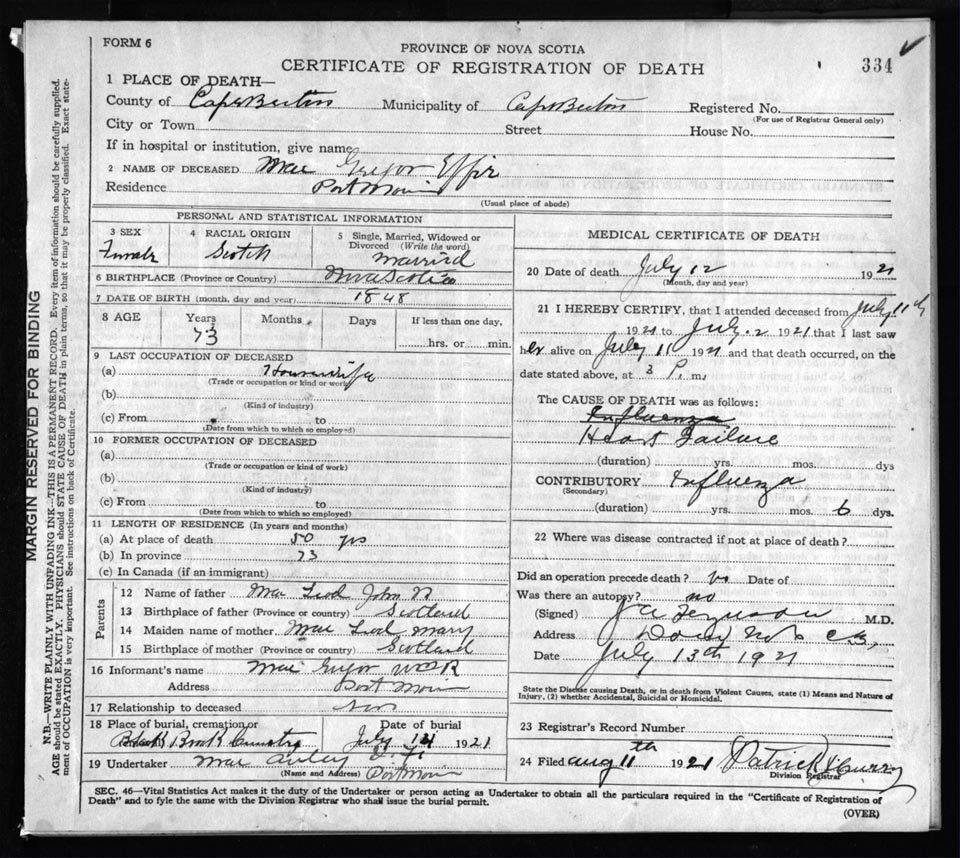 FORM 6
PROVINCE OF NOVA SCOTIA
CERTIFICATE OF REGISTRATION OF DEATH
334
1 PLACE OF DEATH—
County of Cape Breton Municipality of Cape Breton Registered No.
(For use of Registrar General only)
City or Town Street House No.
If in hospital or institution, give name
2 NAME OF DECEASED Mac Gregor Effie
Residence Port Morien
(Usual place of abode)
PERSONAL AND STATISTICAL INFORMATION
3 SEX 4 RACIAL ORIGIN 5 Single, Married, Widowed or Divorced (Write the word)
Female Scotch Married
6 BIRTHPLACE (Province or Country) Nova Scotia
7 DATE OF BIRTH (month, day and year) 1848
8 AGE Years Months Days If less than one day,
73 hrs. or min.
9 LAST OCCUPATION OF DECEASED
(a) Housewife
(Trade or occupation or kind of work)
(b)
(Kind of industry)
(c) From to
(Date from which to which so employed)
10 FORMER OCCUPATION OF DECEASED
(a)
(Trade or occupation or kind of work)
(b)
(Kind of industry)
(c) From to
(Date from which to which so employed)
11 LENGTH OF RESIDENCE (In years and months)
(a) At place of death 50 yrs
(b) In province 73
(c) In Canada (if an immigrant)
Parents
12 Name of father Mac John N
13 Birthplace of father (Province or country) Scotland
14 Maiden name of mother Mac Mary
15 Birthplace of mother (Province or country) Scotland
16 Informant's name Mac Gregor
Address Port Morien
17 Relationship to deceased Son
18 Place of burial, cremation or Date of burial
Black Brook Cemetery July 14 1921
19 Undertaker Mac Auley
(Name and Address) Port Morien
MEDICAL CERTIFICATE OF DEATH
20 Date of death July 12 1921
(Month, day and year)
21 I HEREBY CERTIFY, that I attended deceased from July 11th
1921 to July 2 1921 that I last saw
her alive on July 11 1921 and that death occurred, on the
date stated above, at 3 P. m,
The CAUSE OF DEATH was as follows:
Influenza
Heart Failure
(duration) yrs. mos. dys
CONTRIBUTORY Influenza
(Secondary)
(duration) yrs. mos. 6 dys.
22 Where was disease contracted if not at place of death?
Did an operation precede death? No Date of
Was there an autopsy? no
(Signed) Ferguson M.D.
Address C.B.
Date July 13th 1921
State the Disease causing Death, or in death from Violent Causes, state (1) Means and Nature of
Injury, (2) whether Accidental, Suicidal or Homicidal.
23 Registrar's Record Number
24 Filed Aug 11th 1921 Patrick Curry
Division Registrar
SEC. 46—Vital Statistics Act makes it the duty of the Undertaker or person acting as Undertaker to obtain all the particulars required in the "Certificate of Registration of
Death" and to fyle the same with the Division Registrar who shall issue the burial permit.
(OVER)
MARGIN RESERVED FOR BINDING
N.B.—WRITE PLAINLY WITH UNFADING INK—THIS IS A PERMANENT RECORD. Every item of information should be carefully supplied.
AGE should be stated EXACTLY. PHYSICIANS should STATE CAUSE OF DEATH in plain terms, so that it may be properly classified. Exact state-
ment of OCCUPATION is very important. See instructions on back of Certificate.